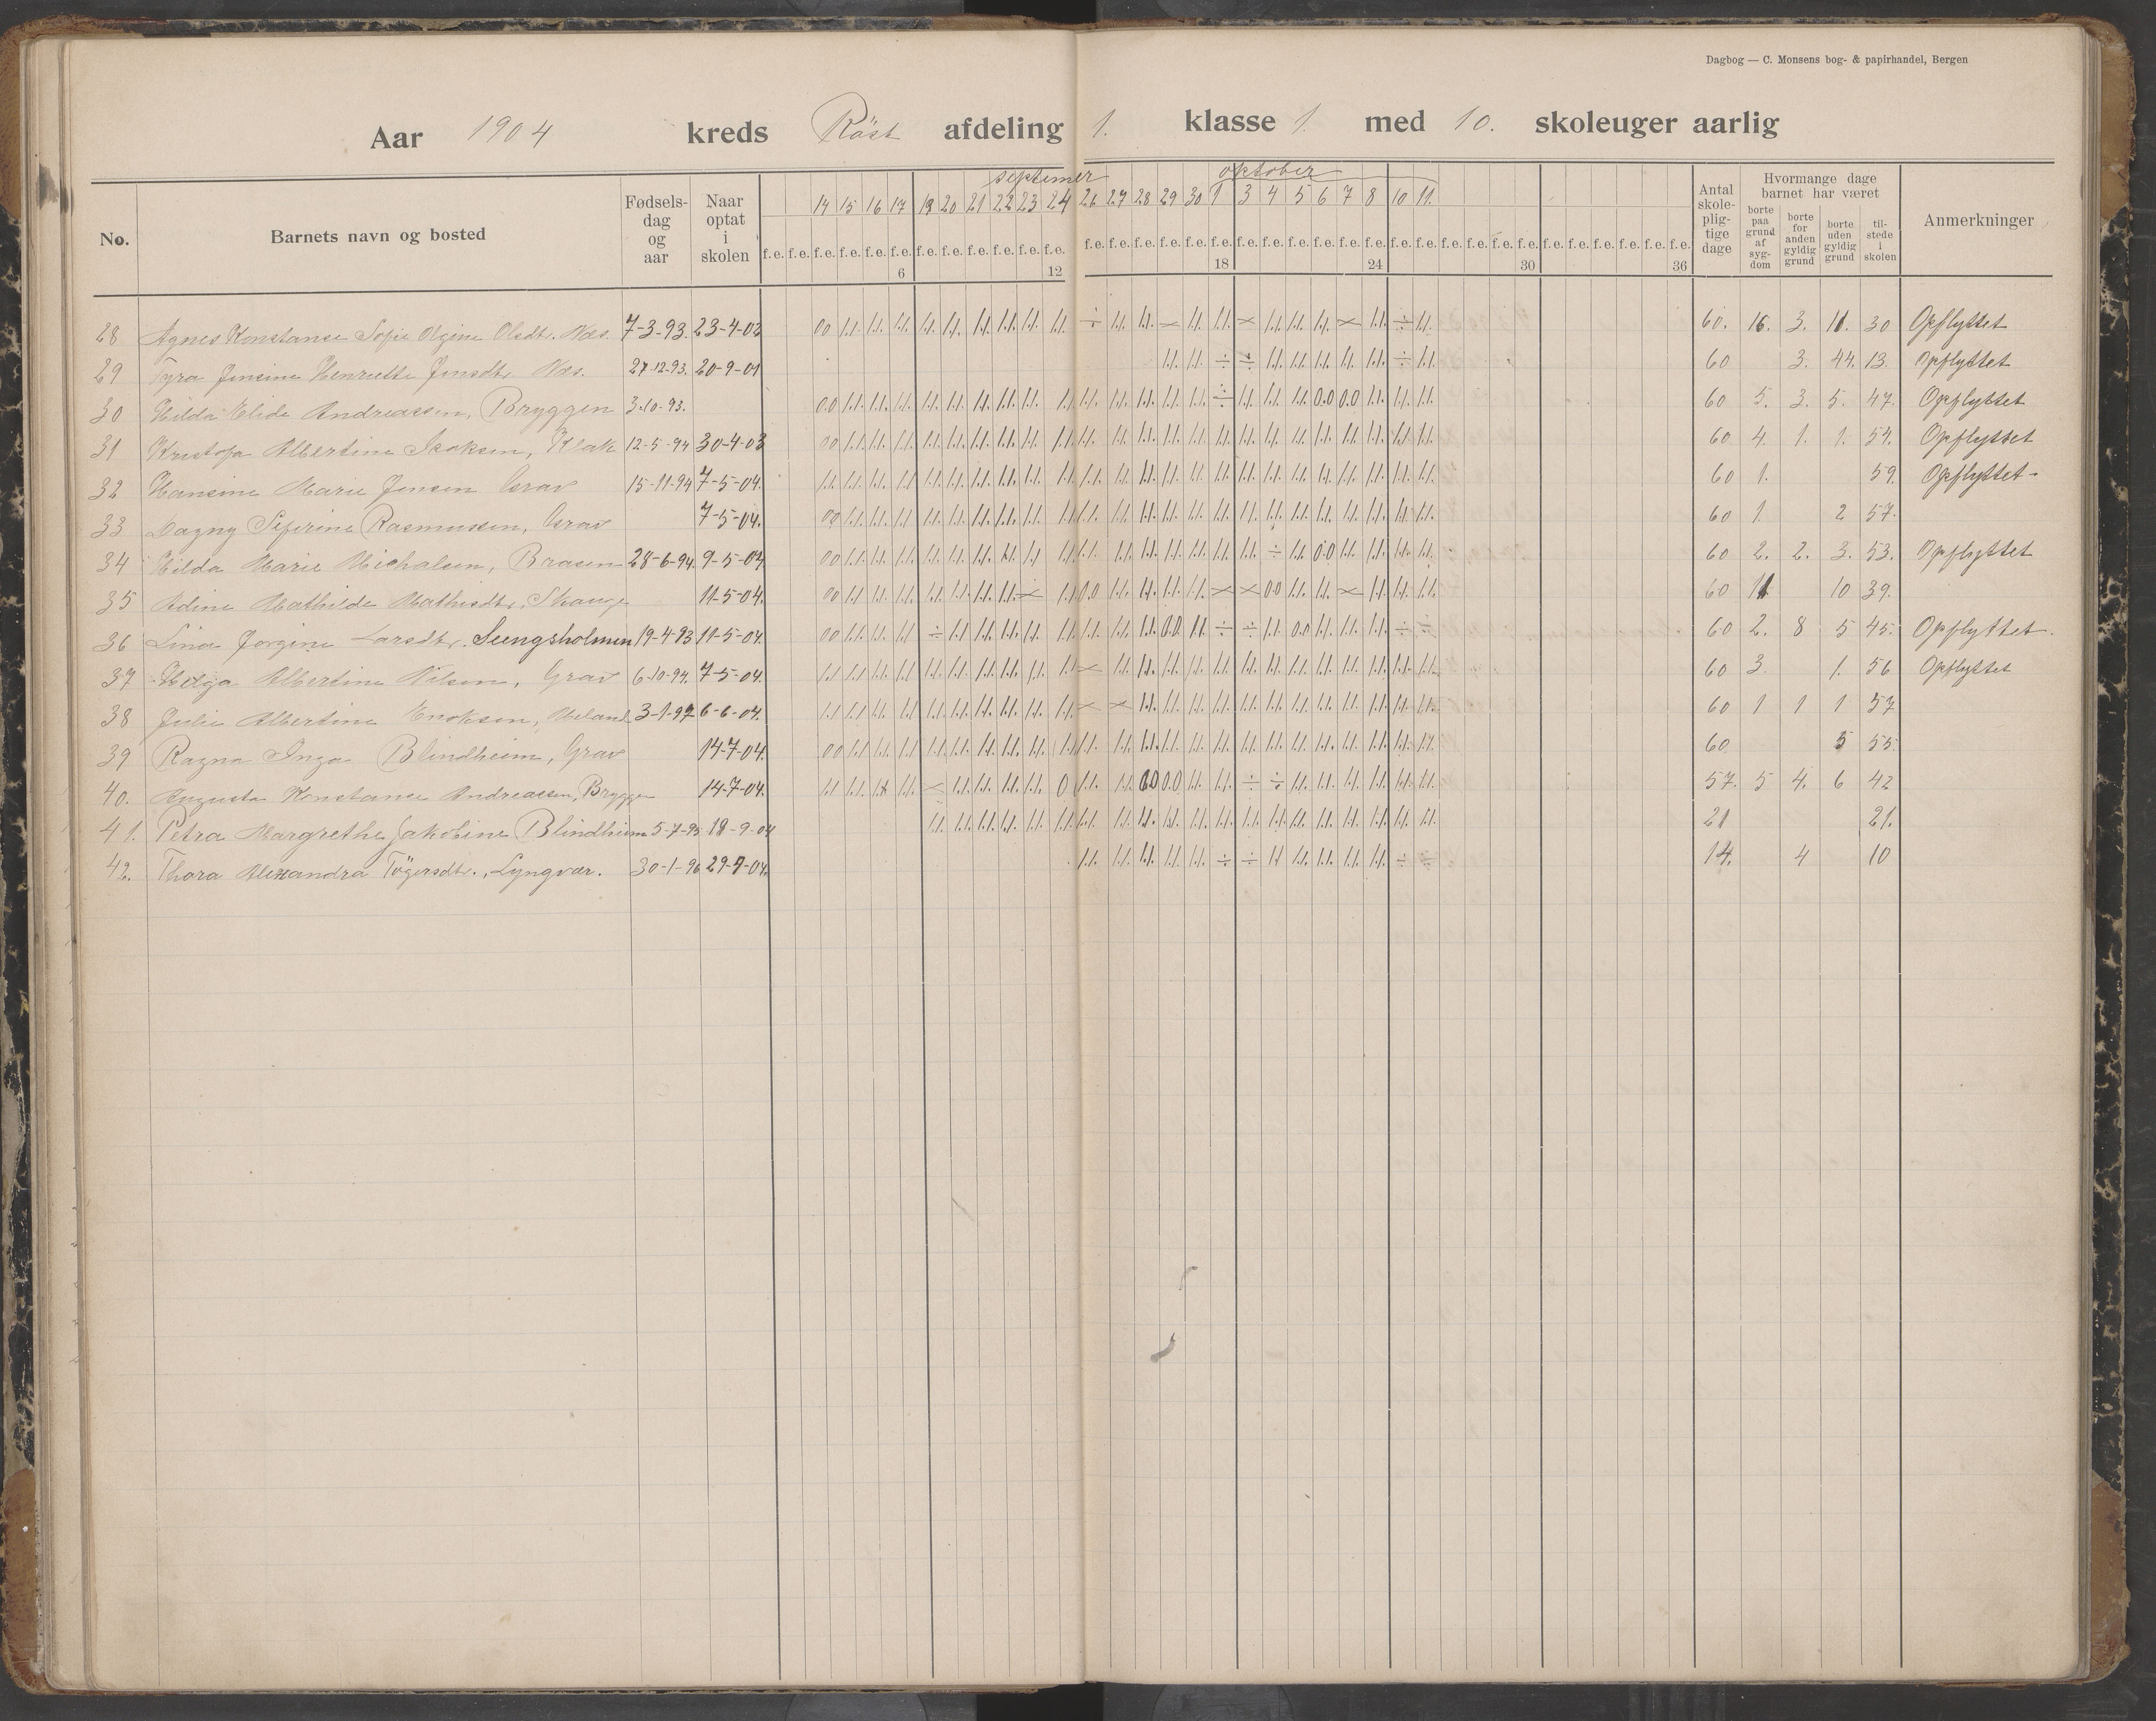 Dagbog — C. Monsens bog- & papirhandel, Bergen
Aar 1904 kreds Röst afdeling 1. klasse 1. med 10. skoleuger aarlig
No. Barnets navn og bosted Fødsels-dag og aar Naar optat i skolen septemer oktober Antal skole-plig-tige dage Hvormange dage barnet har været borte paa grund af syg-dom borte for anden gyldig grund borte uden gyldig grund til-stede i skolen Anmerkninger
14 15 16 17 19 20 21 22 23 24 26 27 28 29 30 1 3 4 5 6 7 8 10 11.
f.e. f.e. f.e. f.e. f.e. f.e. f.e. f.e. f.e. f.e. f.e. f.e. f.e. f.e. f.e. f.e. f.e. f.e. f.e. f.e. f.e. f.e. f.e. f.e. f.e. f.e. f.e. f.e. f.e. f.e. f.e. f.e. f.e. f.e. f.e. f.e.
6 12 18 24 30 36
28 Agnes Konstanse Sofie Olsdtr. Næs. 7-3-93. 23-4-02 60. 16. 3. 11. 30 Opflyttet
29 Tyra Jensine Henriette Jensdtr. Næs. 27-12-93. 20-9-01 60 3. 44. 13. Opflyttet
30 Hilda Elide Andreassen, Bryggen 3-10-93. 60 5. 3. 5. 47. Opflyttet
31 Kristofa Albertine Isaksen, Klak 12-5-94 30-4-03 60 4. 1. 1. 54. Opflyttet
32 Hansine Marie Jensen Grav 15-11-94 7-5-04. 60 1. 59. Opflyttet
33 Dagny Seferine Rasmussen, Grav 7-5-04. 60 1. 2 57.
34 Hilda Marie Michalsen, Braasen 28-6-94. 9-5-04. 60 2. 2. 3. 53. Opflyttet
35 Edine Mathilde Mathisdtr. 11-5-04. 60 11 10 39.
36 Lina Jorgine Larsdtr. Seengsholmen 19-4-93 11-5-04. 60 2. 8 5 45. Opflyttet.
37 Helga Albertine Nilsen, Grav 6-10-94. 7-5-04. 60 3. 1. 56 Opflyttet
38 Julie Albertine Enoksen, 3-1-97 6-6-04. 60 1 1 1 57
39 Ragna Inga Blindheim, Grav 14-7-04. 60. 5 55.
40. Augusta Konstanse Andreassen, Bryggen 14-7-04. 57. 5 4. 6 42
41. Petra Margrethe Jakobine Blindheim 5-7-95 18-9-04 21 21.
42. Thora Alexandra Tögersdtr., Lyngvær. 30-1-96 29-9-04. 14. 4 10